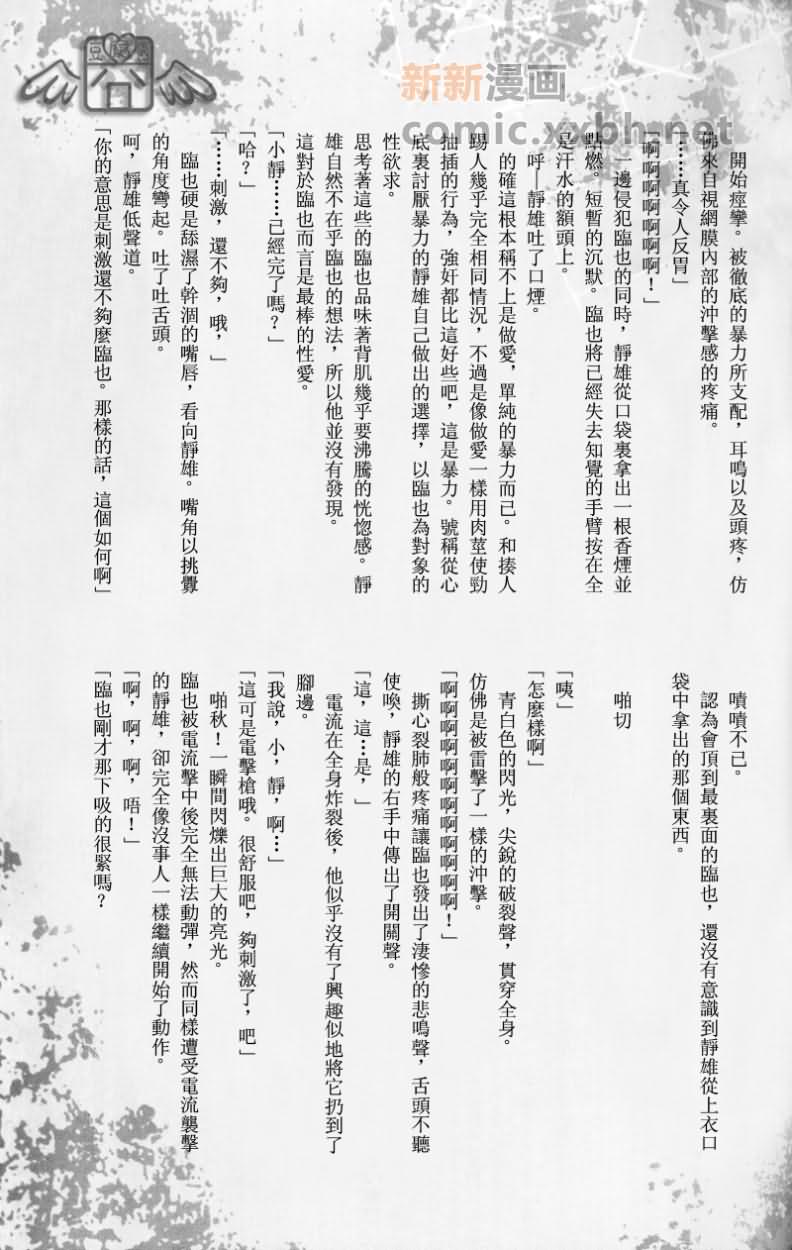 豆腐
囧
新新漫画
comic.xxbh.net
開始痙攣。被徹底的暴力所支配，耳鳴以及頭疼，仿
佛來自視網膜內部的沖擊感的疼痛。
「……真令人反胃」
「啊啊啊啊啊啊！」
一邊侵犯臨也的同時，靜雄從口袋裏拿出一根香煙並
點燃。短暫的沉默。臨也將已經失去知覺的手臂按在全
是汗水的額頭上。
呼—靜雄吐了口煙。
的確這根本稱不上是做愛，單純的暴力而已。和揍人
踢人幾乎完全相同情況，不過是像做愛一樣用肉莖使勁
抽插的行為，強奸都比這好些吧，這是暴力。號稱從心
底裏討厭暴力的靜雄自己做出的選擇，以臨也為對象的
性欲求。
思考著這些的臨也品味著背肌幾乎要沸騰的恍惚感。靜
雄自然不在乎臨也的想法，所以他並沒有發現。
這對於臨也而言是最棒的性愛。
「小靜……已經完了嗎？」
「哈？」
「……刺激，還不夠，哦，」
臨也硬是舔濕了幹涸的嘴唇，看向靜雄。嘴角以挑釁
的角度彎起。吐了吐舌頭。
呵，靜雄低聲道。
「你的意思是刺激還不夠麼臨也。那樣的話，這個如何啊」
嘖嘖不已。
認為會頂到最裏面的臨也，還沒有意識到靜雄從上衣口
袋中拿出的那個東西。
啪切
「咦」
「怎麼樣啊」
青白色的閃光，尖銳的破裂聲，貫穿全身。
仿佛是被雷擊了一樣的沖擊。
「啊啊啊啊啊啊啊啊啊啊啊！」
撕心裂肺般疼痛讓臨也發出了淒慘的悲鳴聲，舌頭不聽
使喚，靜雄的右手中傳出了開關聲。
「這，這…是，」
電流在全身炸裂後，他似乎沒有了興趣似地將它扔到了
腳邊。
「我說，小，靜，啊…」
「這可是電擊槍哦。很舒服吧，夠刺激了，吧」
啪秋！一瞬間閃爍出巨大的亮光。
臨也被電流擊中後完全無法動彈，然而同樣遭受電流襲擊
的靜雄，卻完全像沒事人一樣繼續開始了動作。
「啊，啊，啊，唔！」
「臨也剛才那下吸的很緊嗎？